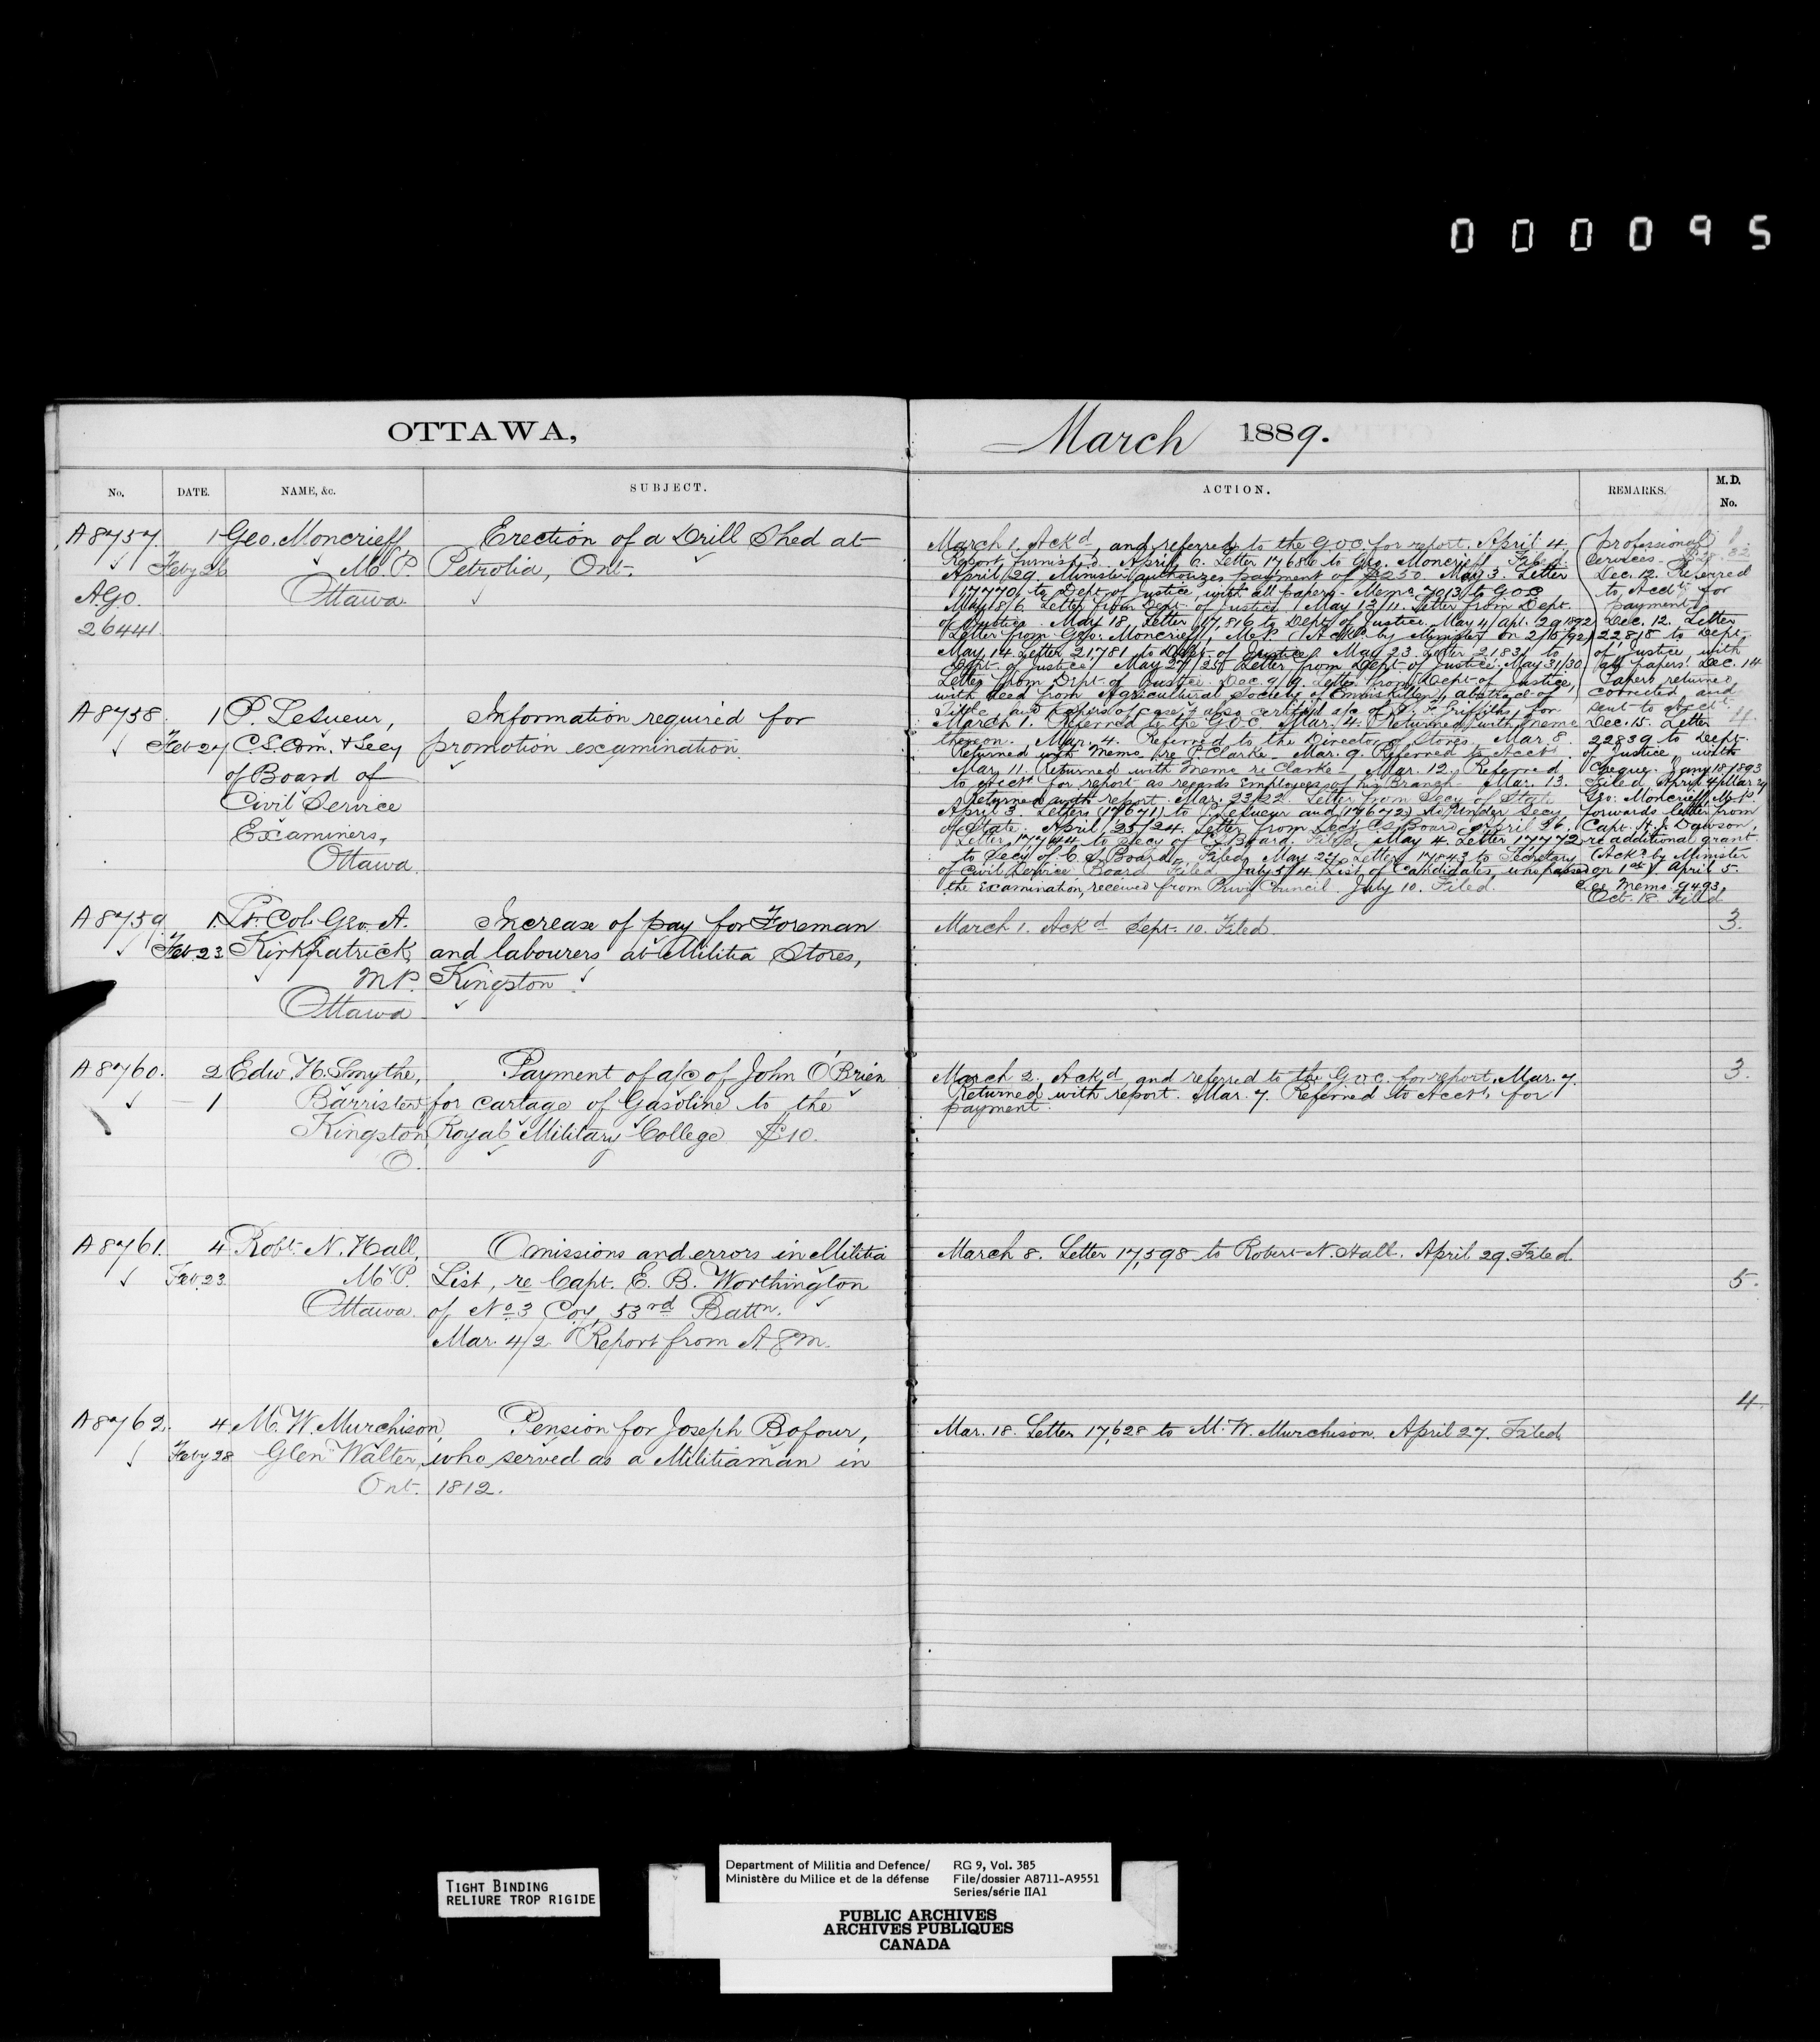 000095
OTTAWA,
March 1889.
No. DATE. NAME, &c. SUBJECT.
ACTION. REMARKS. M.D. No.
A8757. 1 Geo. Moncrieff Erection of a Drill Shed at
Feby 26 M.P. Petrolia, Ont.
A.G.O. Ottawa
26441.
March 1. Ack'd, and referred to the G.O.C. for report. April 4.
Report furnished. April 6. Letter 17686 to Geo. Moncrieff. Filed.
April 29. Minister authorizes payment of $250. May 3. Letter
17770 to Dept. of Justice, with all papers. Memo 7013 to G.O.C.
May 18/6. Letter from Dept. of Justice. May 13/11. Letter from Dept.
of Justice. May 18. Letter 17,816 to Dept. of Justice. May 4/Apl. 29 1892
Letter from Geo. Moncrieff, M.P. (Ack'd by Minister on 2/5/92)
May 14 Letter 21781 to Dept. of Justice. May 23. Letter 21831 to
Dept. of Justice. May 27/25 Letter from Dept. of Justice. May 31/30
Letter from Dept. of Justice. Dec. 9/9. Letter from Dept. of Justice,
with deed from Agricultural Society of Enniskillen, abstract of
Title, and papers of case; also certified a/c of Griffiths, for
professional
services. 1.
Dec. 12. Referred
to Acct. for
payment.
Dec. 12. Letter
22,818 to Dept.
of Justice with
all papers. Dec. 14
Papers returned
corrected, and
sent to Acct.
Dec. 15. Letter
22839 to Dept.
of Justice, with
cheque. Jany 18/1893
Filed. April 4/Mar
Geo. Moncrieff, M.P.
forwards letter from
Capt. Dawson,
re additional grant.
(Ack'd by Minister
on 1st) April 5.
See Memo 9493.
Oct. 18 Filed
A8758. 1 P. LeSueur, Information required for
Feb 27 C.S. Com. & Secy promotion examination.
of Board of
Civil Service
Examiners,
Ottawa
March 1. Referred to the G.O.C. Mar. 4. Returned with memo 4.
thereon. Mar. 4. Referred to the Director of Stores. Mar. 8.
Returned with memo re P. Clarke. Mar. 9. Referred to Acct.
Mar. 11. Returned with memo re Clarke. Mar. 12. Referred
to Acct. for report as regards Employees of his Branch. Mar. 13.
Returned with report. Mar. 23/22. Letter from Secy. of State.
April 3. Letters (17671) to P. LeSueur and (17672) to Under Secy
of State. April 25/24. Letter from Secy. C.S. Board. April 26.
Letter 17744 to Secy of C.S. Board. Filed. May 4. Letter 17772
to Secy. of C.S. Board. Filed. May 27. Letter 17843 to Secretary
of Civil Service Board. Filed. July 5/4. List of Candidates, who passed
the Examination, received from Privy Council. July 10. Filed.
A8759. 1. Lt. Col. Geo. A. Increase of pay for Foreman
Feb. 23 Kirkpatrick, and labourers at Militia Stores,
M.P. Kingston.
Ottawa
March 1. Ack'd Sept. 10. Filed. 3.
A8760. 2 Edw. H. Smythe, Payment of a/c of John O'Brien
1 Barrister, for cartage of Gasoline to the
Kingston, Royal Military College $10.
O.
March 2. Ack'd and referred to the G.O.C. for report. Mar. 7. 3.
Returned with report. Mar. 7. Referred to Acct. for
payment.
A8761. 4 Robt. N. Hall, Omissions and errors in Militia
Feb. 23. M.P. List, re Capt. E. B. Worthington
Ottawa. of No. 3 Coy. 53rd Battn.
Mar. 4/2. Report from A.G.M.
March 8. Letter 17,598 to Robert N. Hall. April 29. Filed.
5.
A8762. 4 M. W. Murchison, Pension for Joseph Bofour,
Feby 28 Glen Walter, who served as a Militiaman in
Ont. 1812.
4.
Mar. 18. Letter 17,628 to M. W. Murchison. April 27. Filed.
TIGHT BINDING
RELIURE TROP RIGIDE
Department of Militia and Defence/
Ministère du Milice et de la défense
RG 9, Vol. 385
File/dossier A8711-A9551
Series/série IIA1
PUBLIC ARCHIVES
ARCHIVES PUBLIQUES
CANADA